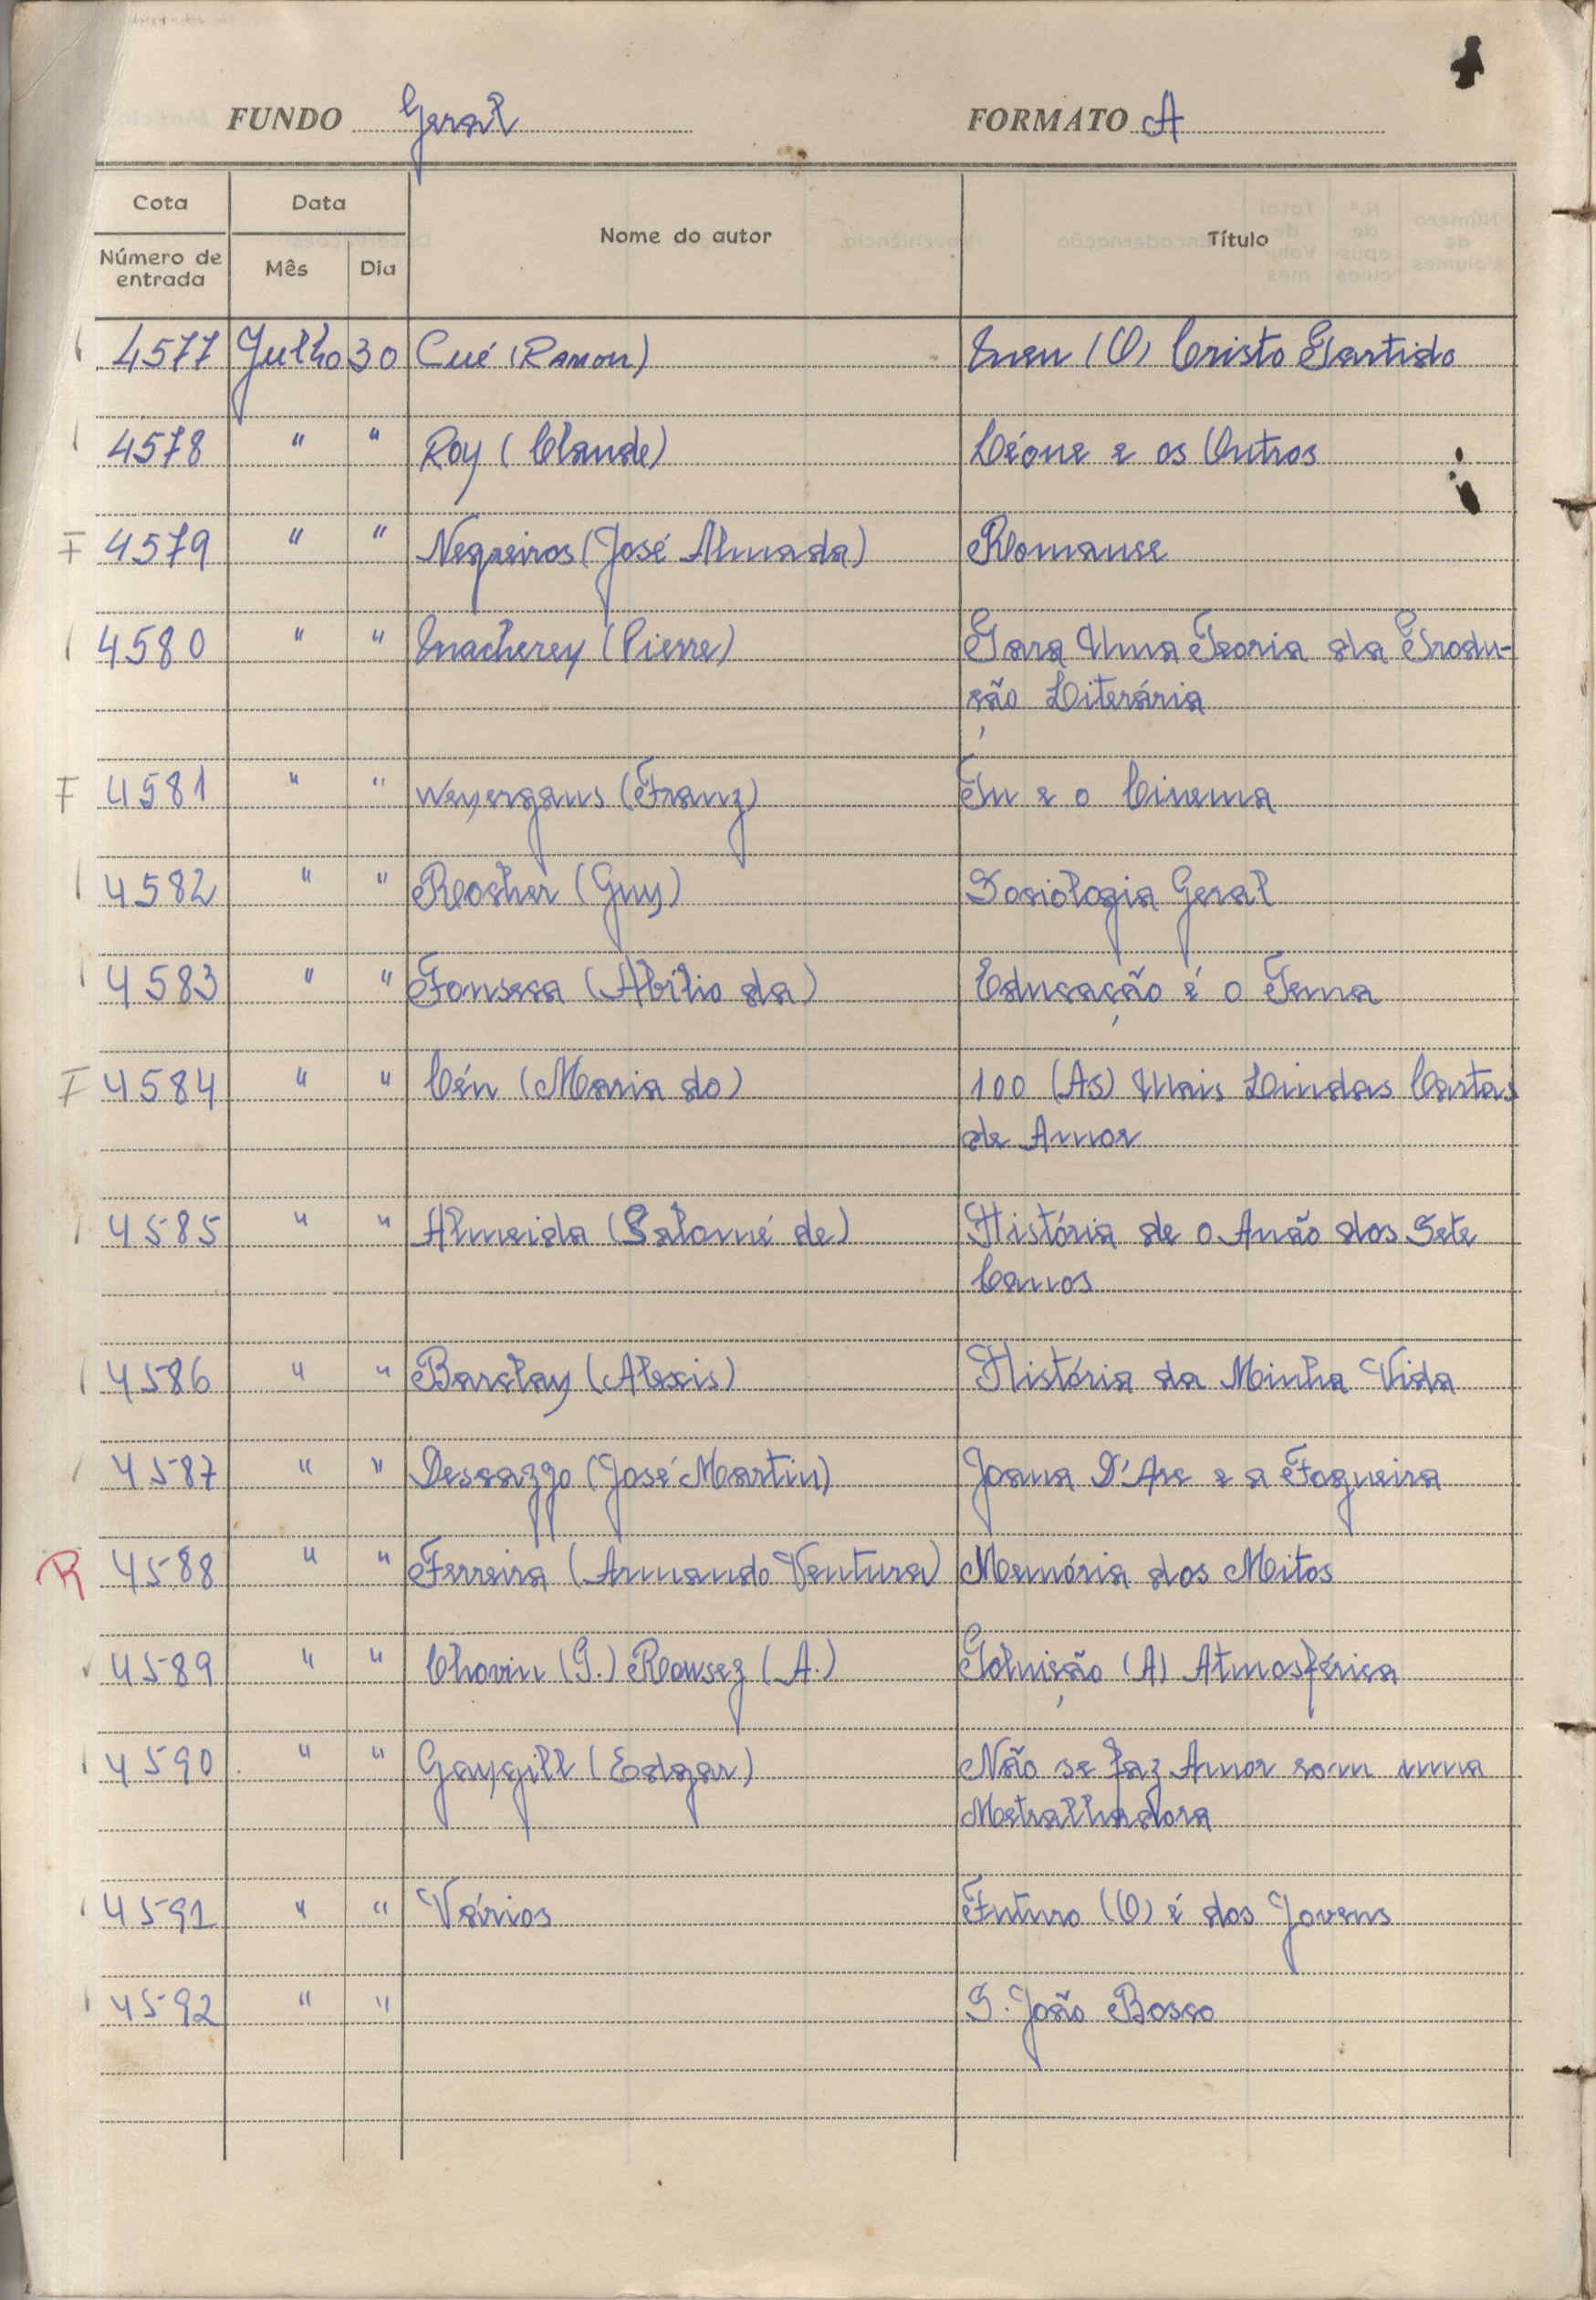 FUNDO Geral FORMATO A
Cota Data Nome do autor Título
Número de entrada Mês Dia
4577 Julho 30 Cué (Ramon) Meu (O) Cristo Partido
4578 " " Roy (Claude) Léone e os Outros
F 4579 " " Negreiros (José Almada) Romance
4580 " " Macherey (Pierre) Para Uma Teoria da Produ-
ção Literária
F 4581 " " Weyergans (Franz) Tu e o Cinema
4582 " " Rocher (Guy) Sociologia Geral
4583 " " Fonseca (Abílio da) Educação é o Tema
F 4584 " " Céu (Maria do) 100 (As) Mais Lindas Cartas
de Amor
4585 " " Almeida (Salomé de) História de o Anão dos Sete
Canos
4586 " " Barclay (Alexis) História da Minha Vida
4587 " " Descazzo (José Martin) Joana D'Arc e a Fogueira
R 4588 " " Ferreira (Armando Ventura) Memória dos Mitos
4589 " " Chovin (P.) Roussez (A.) Poluição (A) Atmosférica
4590 " " Gaygill (Edgar) Não se faz Amor com uma
Metralhadora
4591 " " Vários Futuro (O) é dos Jovens
4592 " " S. João Bosco